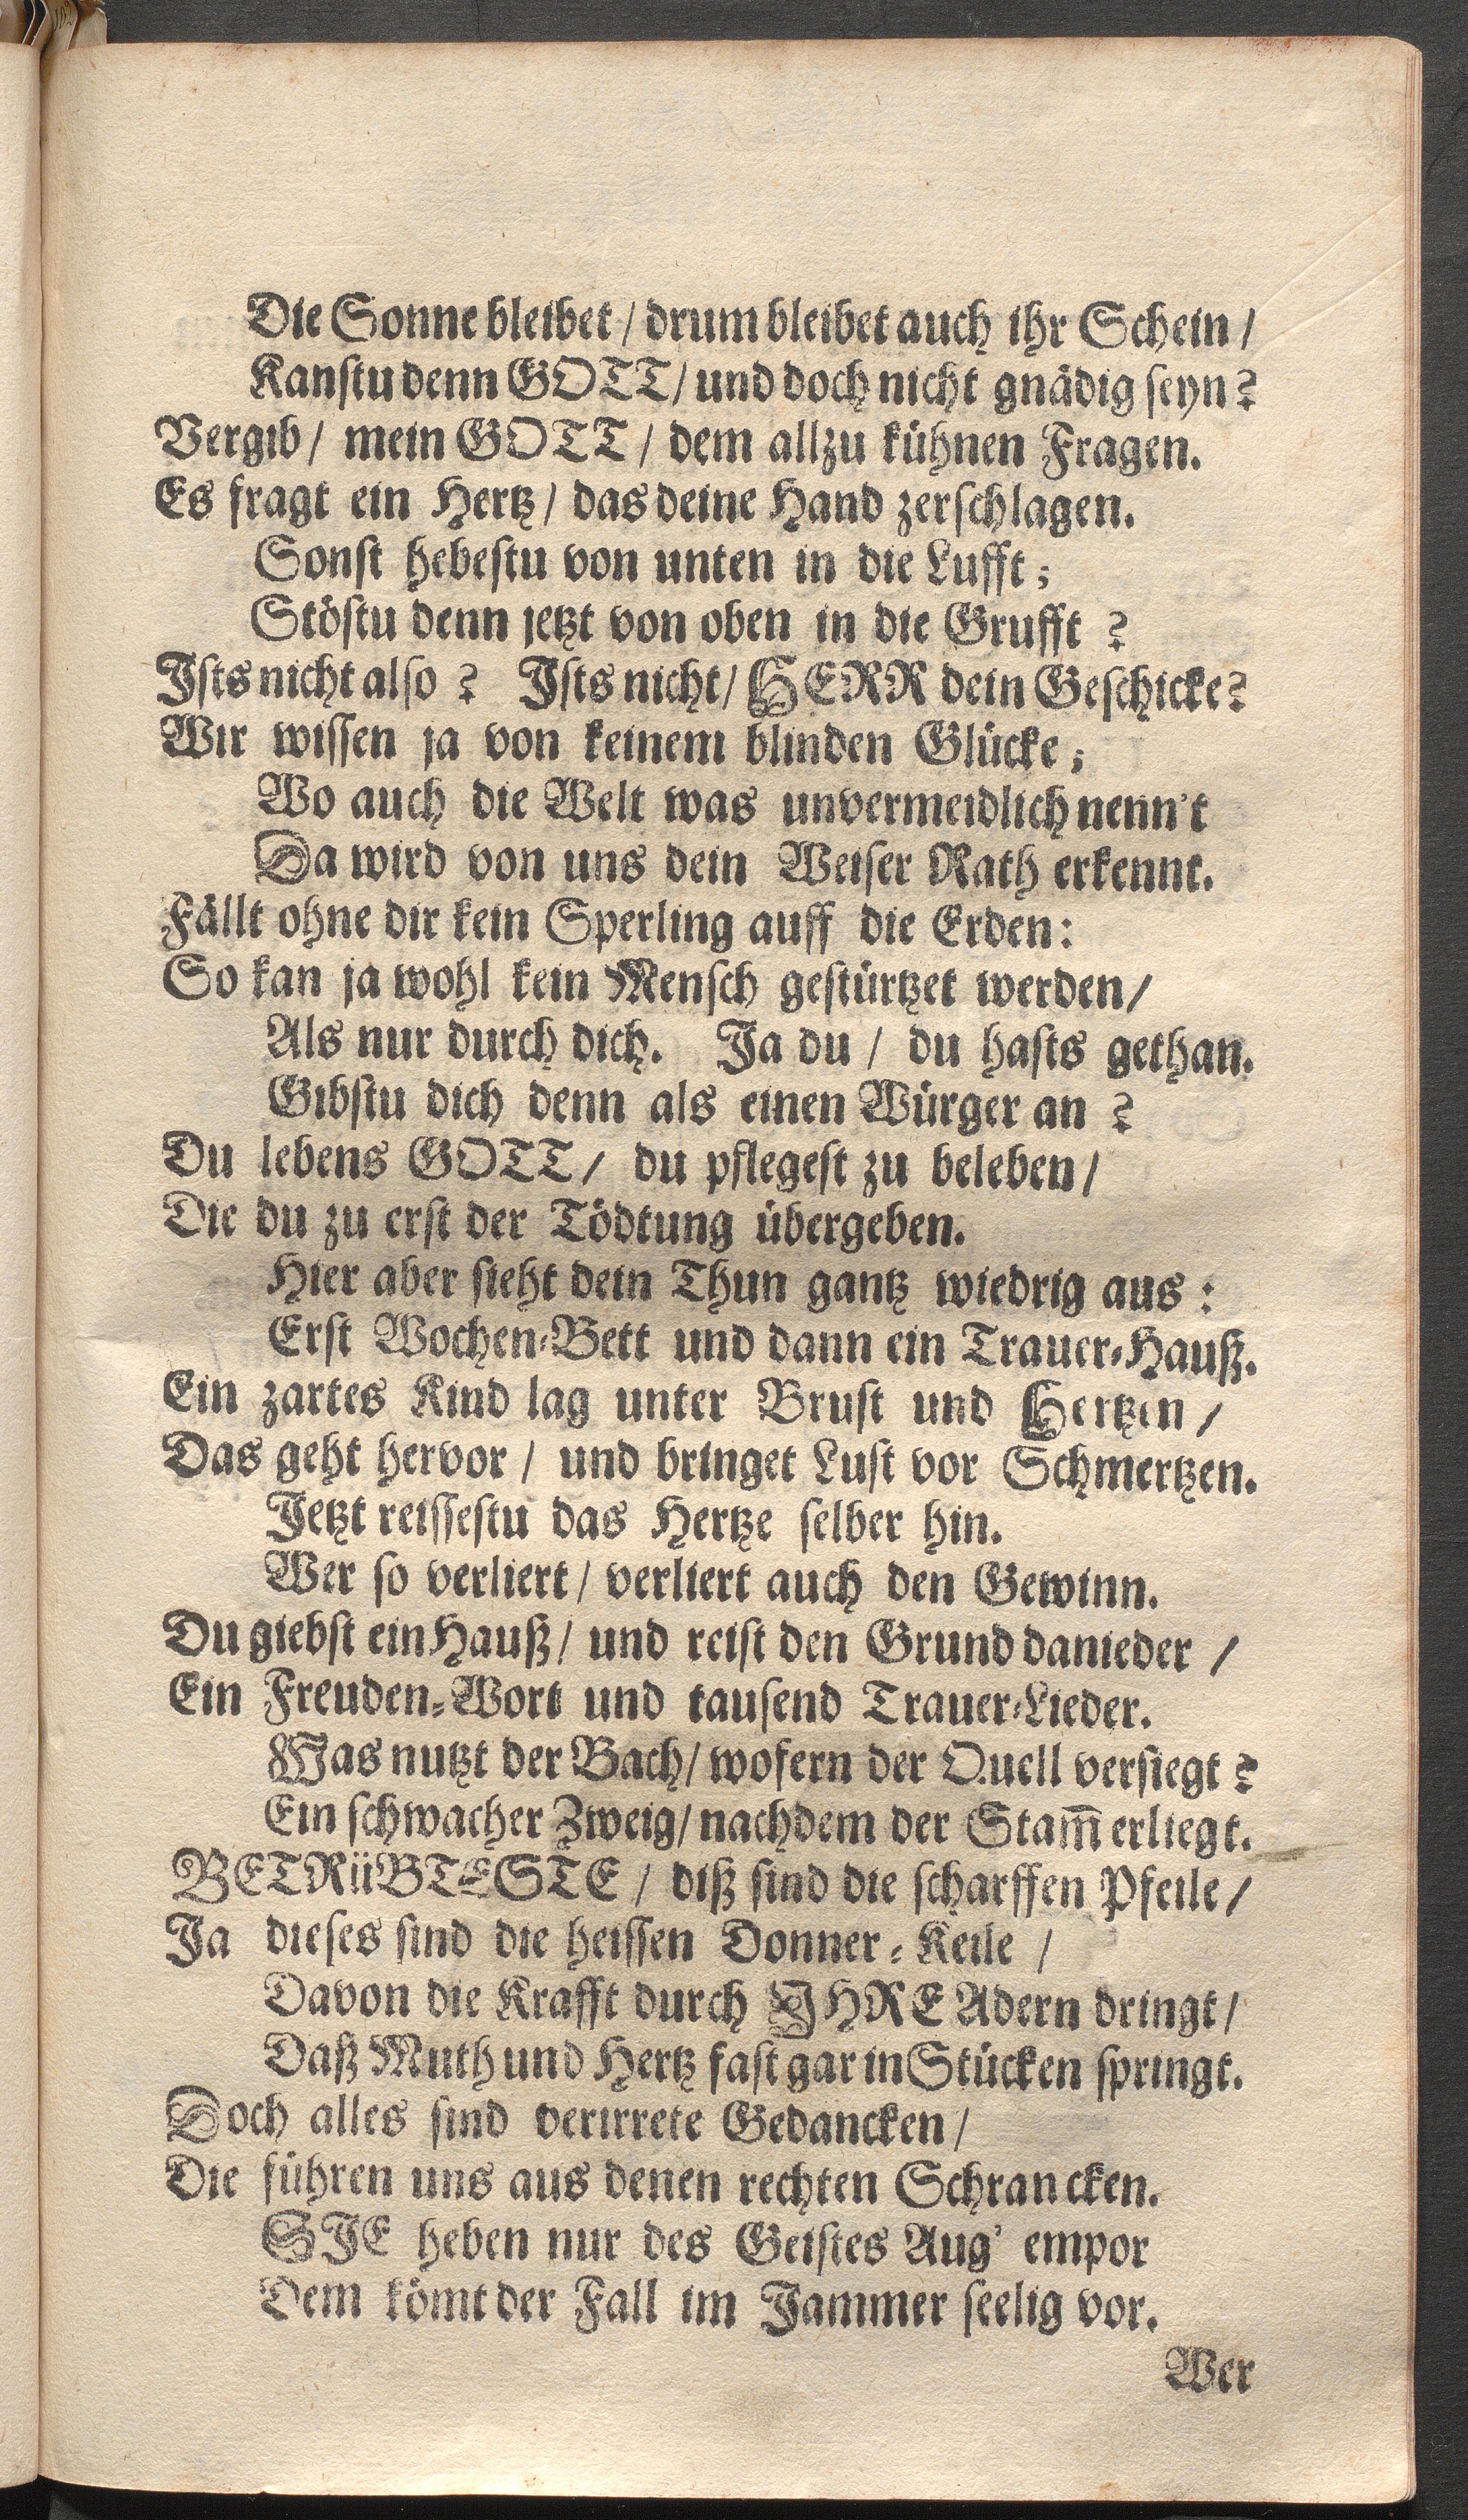 Die Sonne bleibet / drum bleibet auch ihr Schein /
Kanstu denn GOTT / und doch nicht gnädig seyn?
Vergib / mein GOTT / dem allzu kühnen Fragen.
Es fragt ein Hertz / das deine Hand zerschlagen.
Sonst hebestu von unten in die Lufft;
Stöstu denn jetzt von oben in die Grufft?
Ists nicht also? Ists nicht / HERR dein Geschicke?
Wir wissen ja von keinem blinden Glücke;
Wo auch die Welt was unvermeidlich nenn't
Da wird von uns dein Weiser Rath erkennt.
Fällt ohne dir kein Sperling auff die Erden:
So kan ja wohl kein Mensch gestürtzet werden /
Als nur durch dich. Ja du / du hasts gethan.
Gibstu dich denn als einen Würger an?
Du lebens GOTT / du pflegest zu beleben /
Die du zu erst der Tödtung übergeben.
Hier aber sieht dein Thun gantz wiedrig aus:
Erst Wochen-Bett und dann ein Trauer-Hauß.
Ein zartes Kind lag unter Brust und Hertzen /
Das geht hervor / und bringet Lust vor Schmertzen.
Jetzt reissestu das Hertze selber hin.
Wer so verliert / verliert auch den Gewinn.
Du giebst ein Hauß / und reist den Grund danieder /
Ein Freuden-Wort und tausend Trauer-Lieder.
Was nutzt der Bach / wofern der Quell versiegt?
Ein schwacher Zweig / nachdem der Stam̅ erliegt.
BETRüBTESTE / diß sind die scharffen Pfeile /
Ja dieses sind die heissen Donner-Keile /
Davon die Krafft durch JHRE Adern dringt /
Daß Muth und Hertz fast gar in Stücken springt.
Doch alles sind verirrete Gedancken /
Die führen uns aus denen rechten Schrancken.
SJE heben nur des Geistes Aug' empor
Dem kömt der Fall im Jammer seelig vor.
Wer